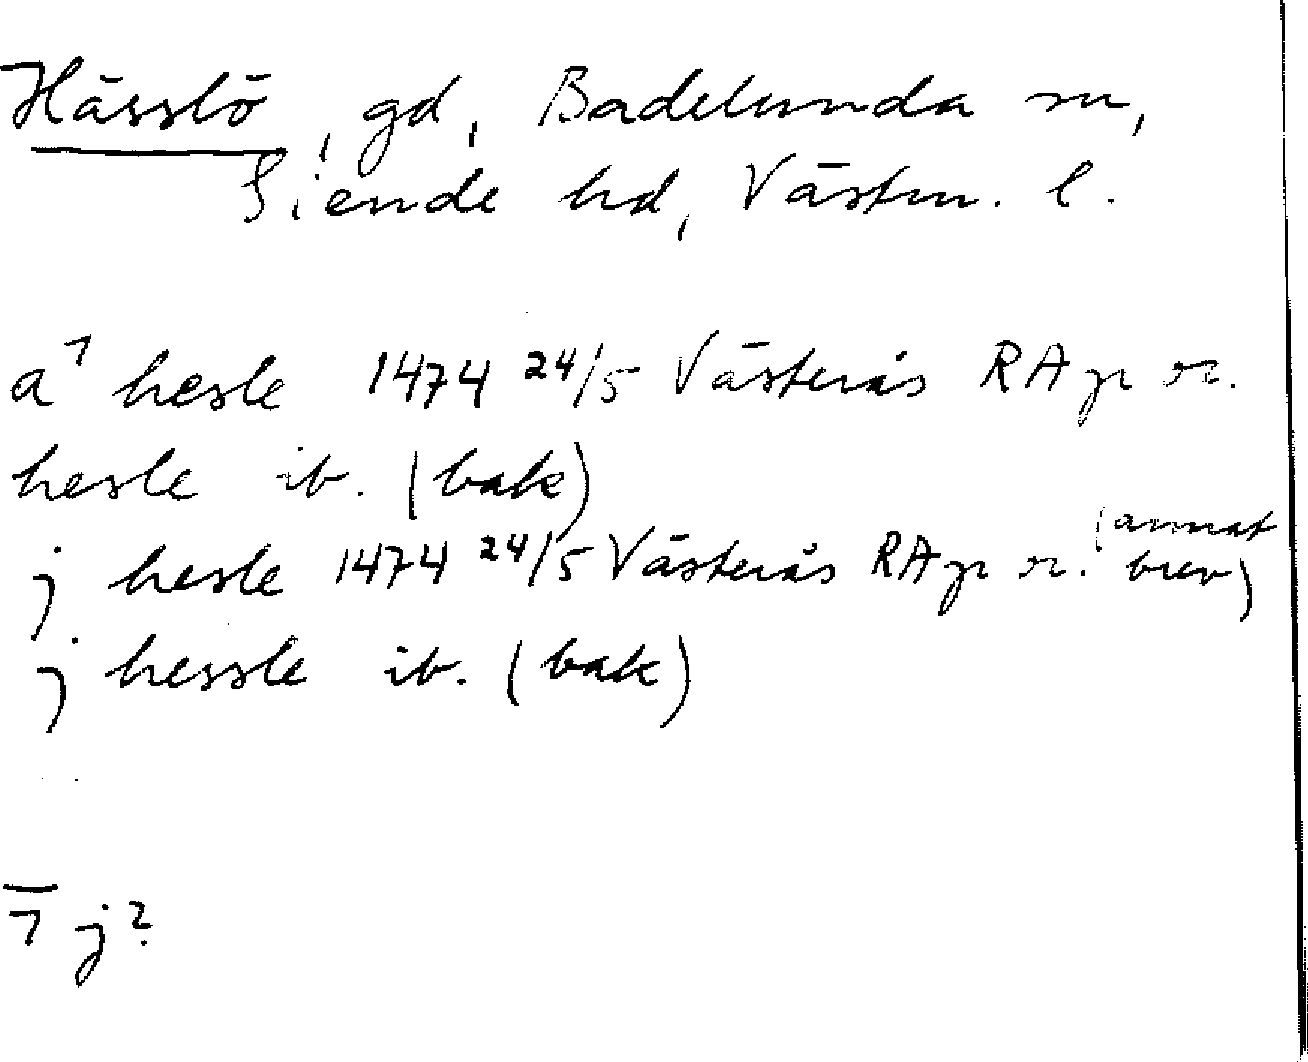 Hässlö, gd, Badelunda sn,
Siende hd, Västm. l.
a⁷ hesle 1474 24/5 Västerås RAp or.
hesle ib. (bak)
j hesle 1474 24/5 Västerås RAp or. (annat brev)
j hessle ib. (bak)
7 j?